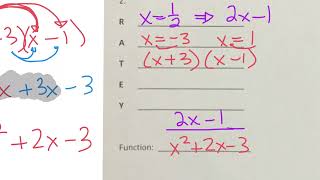 2.
R x = 1/2 ⇒ 2x-1
A x = -3 x = 1
+3)(x - 1)
T (x+3)(x-1)
E
x + 3x - 3
Y
2x-1
x² + 2x - 3
Function: x²+2x-3